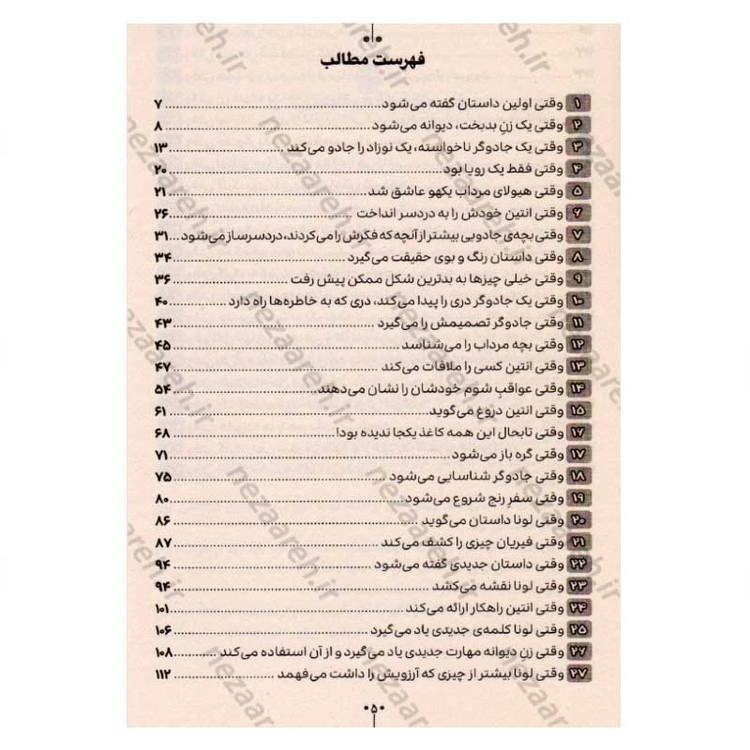 فهرست مطالب
۱ وقتی اولین داستان گفته می‌شود ۷
۲ وقتی یک زنِ بدبخت، دیوانه می‌شود ۸
۳ وقتی یک جادوگر ناخواسته، یک نوزاد را جادو می‌کند ۱۳
۴ وقتی فقط یک رویا بود ۲۰
۵ وقتی هیولای مرداب یکهو عاشق شد ۲۱
۶ وقتی انتین خودش را به دردسر انداخت ۲۶
۷ وقتی بچه‌ی جادویی بیشتر از آنچه که فکرش را می‌کردند، دردسرساز می‌شود ۳۱
۸ وقتی داستان رنگ و بوی حقیقت می‌گیرد ۳۴
۹ وقتی خیلی چیزها به بدترین شکل ممکن پیش رفت ۳۶
۱۰ وقتی یک جادوگر دری را پیدا می‌کند، دری که به خاطره‌ها راه دارد ۴۰
۱۱ وقتی جادوگر تصمیمش را می‌گیرد ۴۳
۱۲ وقتی بچه مرداب را می‌شناسد ۴۵
۱۳ وقتی انتین کسی را ملاقات می‌کند ۴۷
۱۴ وقتی عواقبِ شوم خودشان را نشان می‌دهند ۵۴
۱۵ وقتی انتین دروغ می‌گوید ۶۱
۱۶ وقتی تابحال این همه کاغذ یکجا ندیده بود! ۶۸
۱۷ وقتی گره باز می‌شود ۷۱
۱۸ وقتی جادوگر شناسایی می‌شود ۷۵
۱۹ وقتی سفرِ رنج شروع می‌شود ۸۰
۲۰ وقتی لونا داستان می‌گوید ۸۶
۲۱ وقتی فیریان چیزی را کشف می‌کند ۸۷
۲۲ وقتی داستان جدیدی گفته می‌شود ۹۴
۲۳ وقتی لونا نقشه می‌کشد ۹۴
۲۴ وقتی انتین راهکار ارائه می‌کند ۱۰۱
۲۵ وقتی لونا کلمه‌ی جدیدی یاد می‌گیرد ۱۰۶
۲۶ وقتی زنِ دیوانه مهارت جدیدی یاد می‌گیرد و از آن استفاده می‌کند ۱۰۸
۲۷ وقتی لونا بیشتر از چیزی که آرزویش را داشت می‌فهمد ۱۱۲
۵
nezaareh.ir